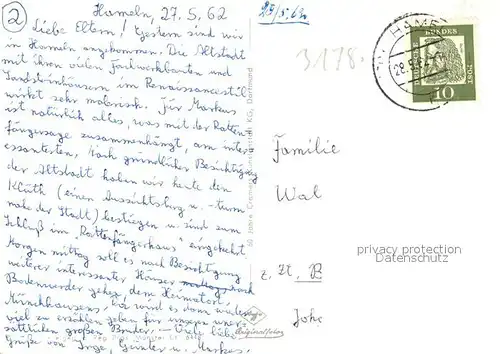 ②
Hameln, 27.5.62
Liebe Eltern! Gestern sind wir
in Hameln angekommen. Die Altstadt
mit ihren vielen Fachwerkbauten und
Sandsteinhäusern im Renaissancestil
wirkt sehr malerisch. Für Markus
ist natürlich alles, was mit der Ratten-
fängersage zusammenhängt, am inter-
essantesten. Nach gründlicher Besichtigung
der Altstadt haben wir heute den
Klüth (einen Aussichtsberg u. -turm
nahe der Stadt) bestiegen u. sind zum
Schluß im "Rattenfängerhaus" eingekehrt.
Morgen mittag soll es nach Besichtigung
weiterer interessanter Häuser nach
Bodenwerder gehen, dem Heimatort
Münchhausens, da wird es dann wieder
viel zu erzählen geben für unseren
großen Bruder. Viele liebe
Grüße von Inge, Günter u. Markus.
3178.
HAME
28.
DEUTSCHE BUNDESPOST
10
1961
Familie
Wal
z. Zt. B
Johe
privacy protection
Datenschutz
Agfa
Originalfotos